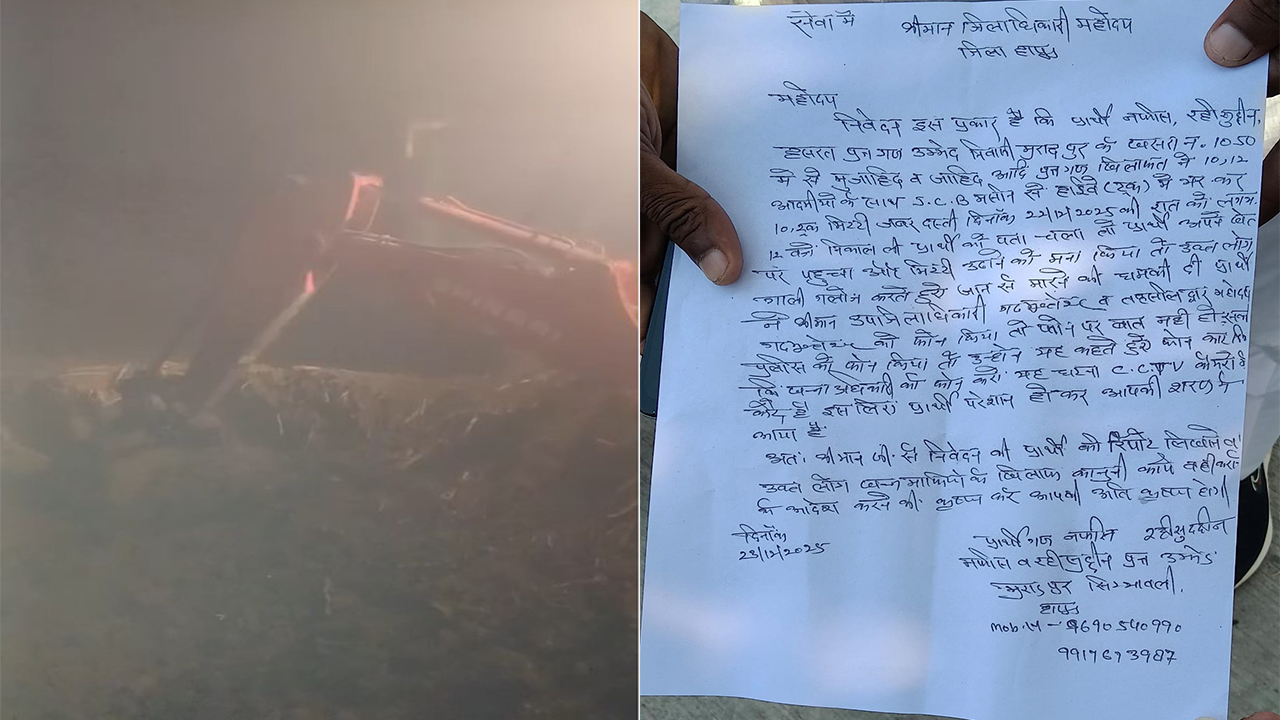 सेवा में
श्रीमान जिलाधिकारी महोदय
जिला हापुड़
महोदय
निवेदन इस प्रकार है कि प्रार्थी नफीस, रहीसुद्दीन,
हसरत पुत्र गण उम्मेद निवासी मुरादपुर के खसरा नं. 1050
में से मुजाहिद व जाहिद आदि पुत्रगण खिलाफत ने 10,12
आदमीयों के साथ J.C.B मशीन से हाईवे (ट्रक) में भर कर
10, ट्रक मिट्टी जबरदस्ती दिनाँक 22/12/2025 की रात को लगभग
12 बजे निकाल ली प्रार्थी को पता चला तो प्रार्थी अपने खेत
पर पहुच्चा और मिट्टी उठाने को मना किया तो उक्त लोग
गाली गलोच करते हुऐ जान से मारने की धमकी दी प्रार्थी
ने श्रीमान उपजिलाधिकारी गढ़मुक्तेश्वर व तहसीलदार महोदय
गढ़मुक्तेश्वर को फोन किया तो फोन पर बात नही हो सकी
पुलीस को फोन किया तो उन्होंने यह कहते हुऐ फोन काट दिया
कि खन्न अधिकारी को फोन करो यह घटना C.C.TV कैमरो में
कैद है इस लिए प्रार्थी परेशान होकर आपकी शरण में
आया है.
अतः श्रीमान जी से निवेदन की प्रार्थी की रिपोर्ट लिखाने व
उक्त लोग खन्न माफियो के खिलाफ कानूनी कार्य वाही करा
के आदेश करने की कृप्या करे आपकी अति कृप्या होगी
दिनाँक
23/12/2025
प्रार्थीगण नफीस रहीसुददीन
नफीस व रहीसुद्दीन पुत्र उम्मेद
मुरादपुर सिखावली.
हापुड़
mob. न - 9690540990
9917673987